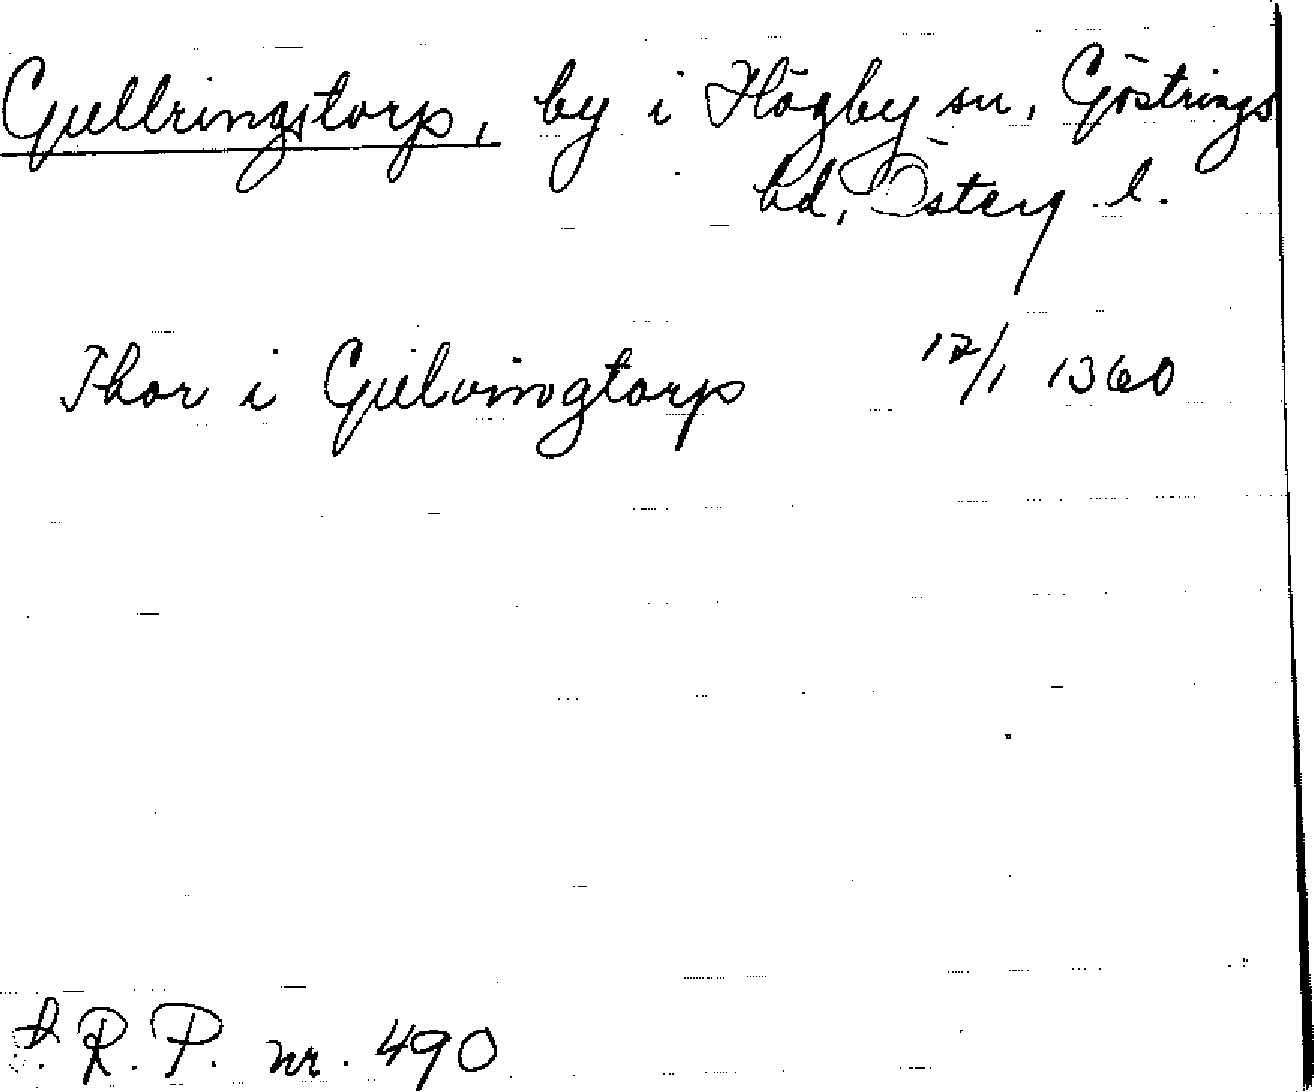 Gullringstorp, by i Högby sn, Göstrings
hd, Österg. l.
Thor i Gulvingtorp 12/1 1360
S. R. P. nr. 490